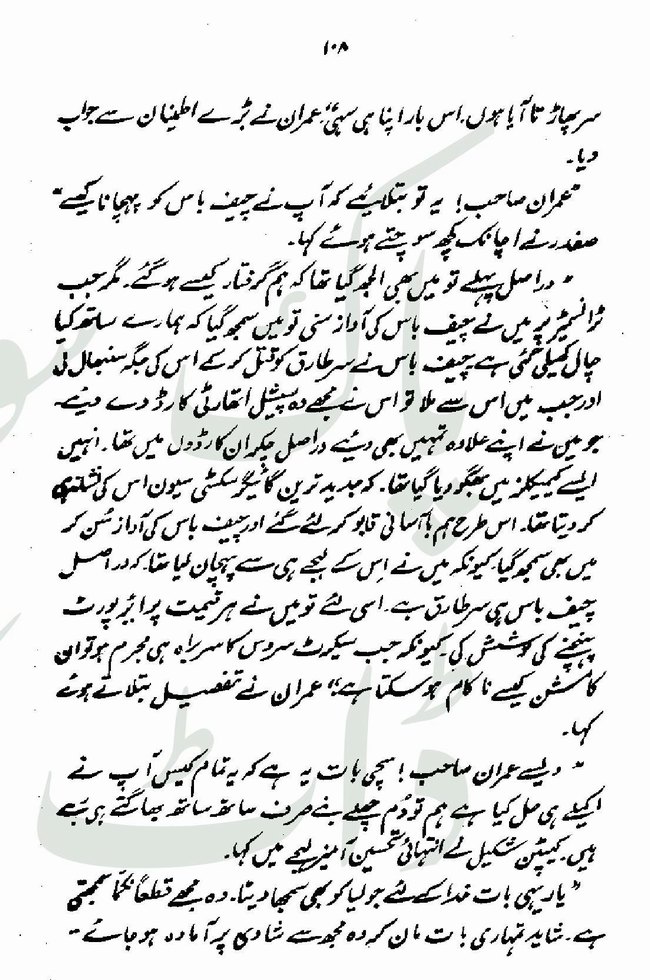 ۱۰۸
سر پھاڑتا آیا ہوں۔ اس بار اپنا ہی سہی“ عمران نے بڑے اطمینان سے جواب
دیا۔
”عمران صاحب! یہ تو بتلائیے کہ آپ نے چیف باس کو پہچانا کیسے“
صفدر نے اچانک کچھ سوچتے ہوئے کہا۔
”دراصل پہلے تو میں بھی الجھ گیا تھا کہ ہم گرفتار کیسے ہو گئے۔ مگر جب
ٹرانسمیٹر پر میں نے چیف باس کی آواز سنی تو میں سمجھ گیا کہ ہمارے ساتھ کیا
چال کھیلی گئی ہے چیف باس نے سر طارق کو قتل کر کے اس کی جگہ سنبھال لی
اور جب میں اس سے ملا تو اس نے مجھے وہ سپیشل اتھارٹی کارڈ دے دیئے۔
جو میں نے اپنے علاوہ تمہیں بھی دیئے دراصل چکر ان کارڈوں میں تھا۔ انہیں
ایسے کیمیکلز میں بھگو دیا گیا تھا۔ کہ جدید ترین گائیگر سکسٹی سیون اس کی نشاندہی
کر دیتا تھا۔ اس طرح ہم بآسانی قابو کر لئے گئے اور چیف باس کی آواز سُن کر
میں بھی سمجھ گیا کیونکہ میں نے اس کے لہجے ہی سے پہچان لیا تھا۔ کہ دراصل
چیف باس ہی سر طارق ہے۔ اسی لئے تو میں نے ہر قیمت پر ائرپورٹ
پہنچنے کی کوشش کی۔ کیونکہ جب سیکرٹ سروس کا سربراہ ہی مجرم ہو تو ان
کا مشن کیسے ناکام ہو سکتا ہے“ عمران نے تفصیل بتلاتے ہوئے
کہا۔
”ویسے عمران صاحب! سچی بات یہ ہے کہ یہ تمام کیس آپ نے
اکیلے ہی حل کیا ہے ہم تو دُم چھلے بنے صرف ساتھ ساتھ بھاگتے ہی رہے
ہیں۔ کیپٹن شکیل نے انتہائی تحسین آمیز لہجے میں کہا۔
”یار یہی بات خدا کے لئے جولیا کو بھی سمجھا دیتا۔ وہ مجھے قطعاً نکما سمجھتی
ہے۔ شاید تمہاری بات مان کر وہ مجھ سے شادی پر آمادہ ہو جائے۔